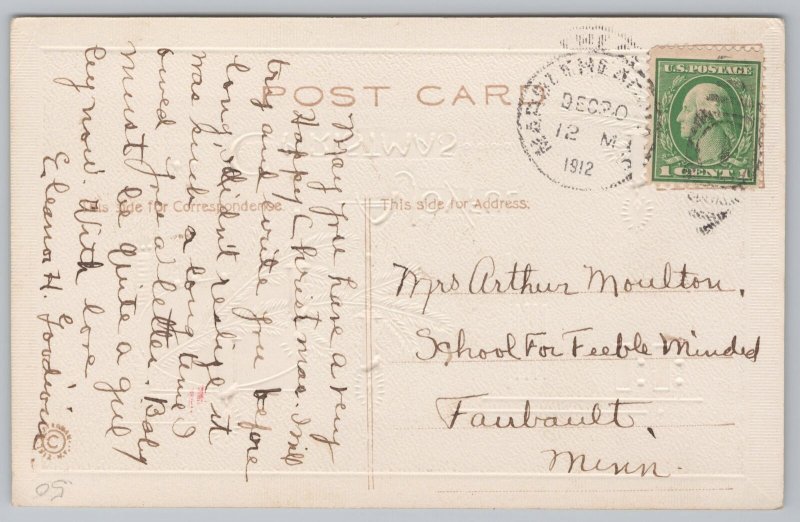 POST CARD
DEC 20
12 M
1912
U.S. POSTAGE
1 CENT 1
This side for Correspondence.
This side for Address.
May you have a very
Happy Christmas. I will
try and write you before
long, didn't realize it
was such a long time I
owed you a letter. Baby
must be quite a girl
by now. With love
Eleanor H.
Mrs Arthur Moulton,
School For Feeble Minded
Fairbault,
Minn.
50